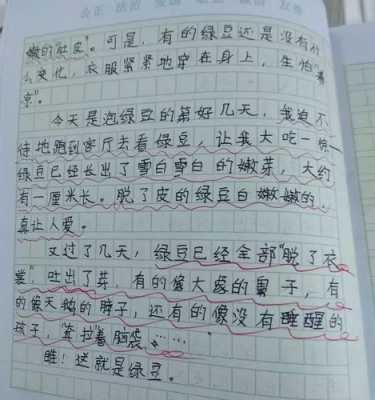 嫩的肚皮”。可是，有的绿豆还是没有什
么变化，衣服紧紧地穿在身上，生怕“着
凉”。
今天是泡绿豆的第好几天，我迫不
待地跑到客厅去看绿豆，让我大吃一惊
绿豆已经长出了雪白雪白的嫩芽，大约
有一厘米长。脱了皮的绿豆白嫩嫩的，
真让人爱。
又过了几天，绿豆已经全部“脱了衣
裳”，吐出了芽，有的像大象的鼻子，有
的像天鹅的脖子，还有的像没有睡醒的
孩子，“耷拉”着脑袋。……
瞧！这就是绿豆。